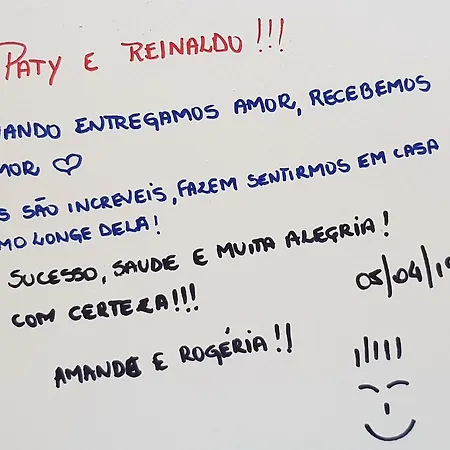 PATY E REINALDO!!!
ANDO ENTREGAMOS AMOR, RECEBEMOS
MOR ♡
S SÃO INCREVEIS, FAZEM SENTIRMOS EM CASA
MO LONGE DELA!
SUCESSO, SAUDE E MUITA ALEGRIA!
COM CERTEZA!!!
05/04/19
AMANDE E ROGÉRIA!!